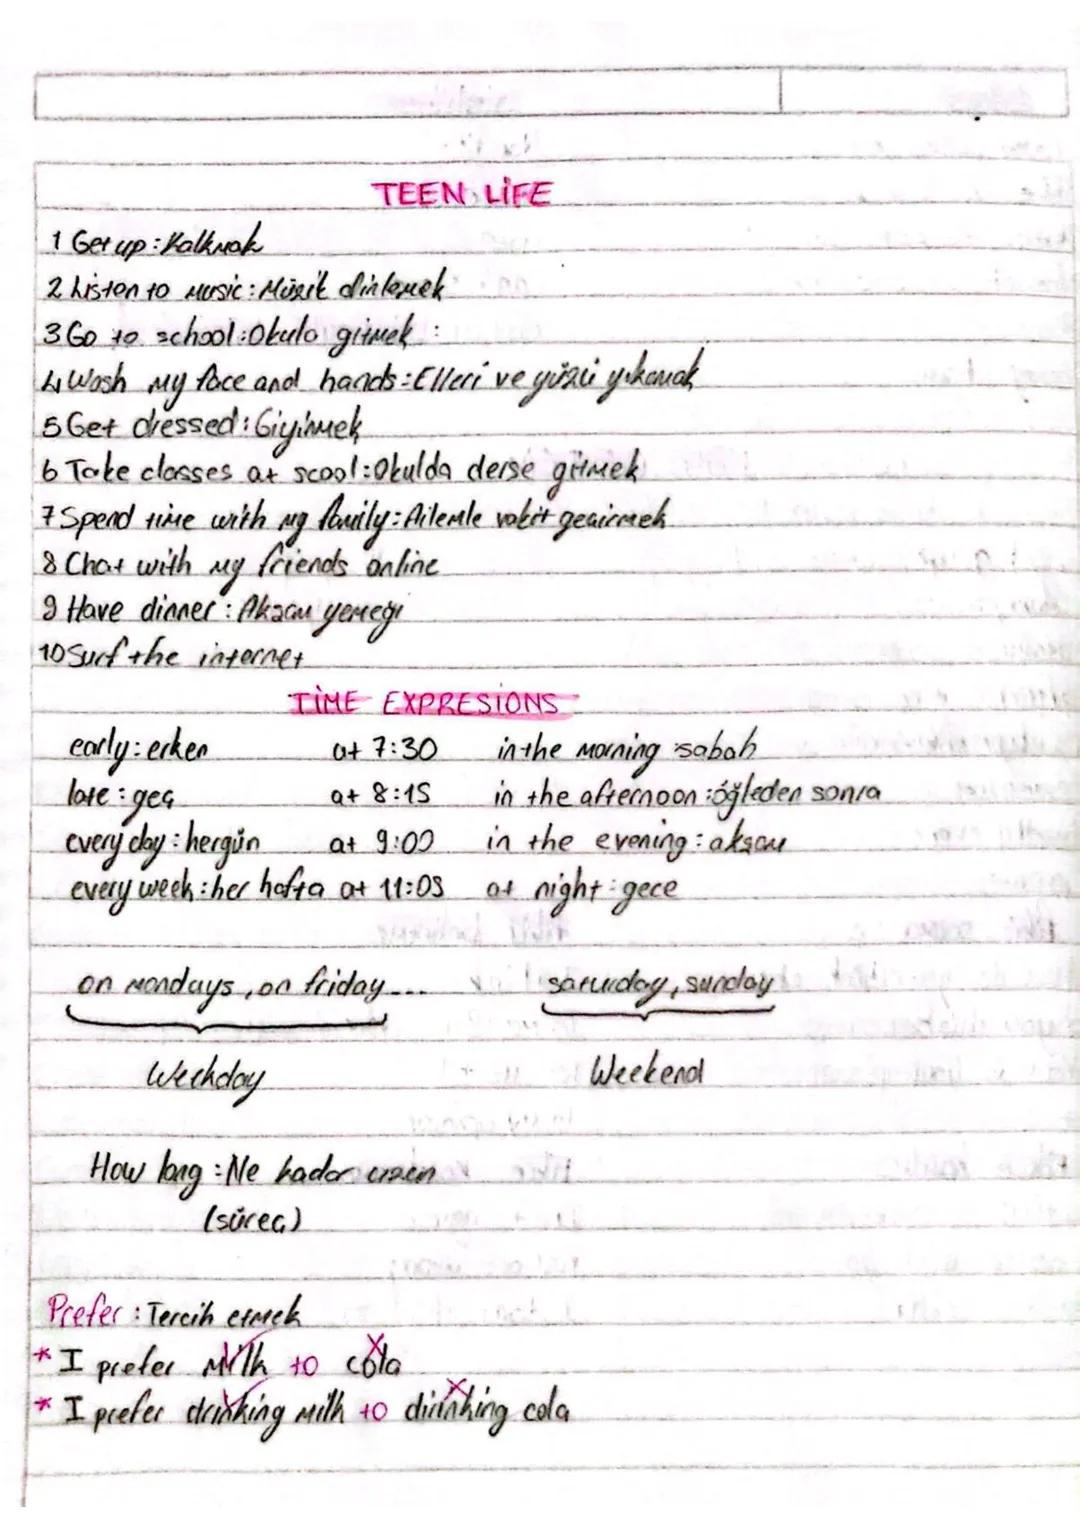 TEEN LİFE
1 Get up : Kalkmak
2 Listen to music : Müzik dinlemek
3 Go to school : Okula gitmek :
4 Wash my face and hands : Elleri ve yüzü yıkamak
5 Get dressed : Giyinmek
6 Take classes at scool : Okulda derse gitmek
7 Spend time with my family : Ailemle vakit geçirmek
8 Chat with my friends online
9 Have dinner : Akşam yemeği
10 Surf the internet
TİME EXPRESIONS
early : erken at 7:30 in the morning : sabah
late : geç at 8:15 in the afternoon : öğleden sonra
every day : hergün at 9:00 in the evening : akşam
every week : her hafta at 11:05 at night : gece
on mondays, on friday... saturday, sunday
Weekday Weekend
How long : Ne kadar uzun
(süreç)
Prefer : Tercih etmek
* I prefer milk to cola
* I prefer drinking milk to dirinking cola